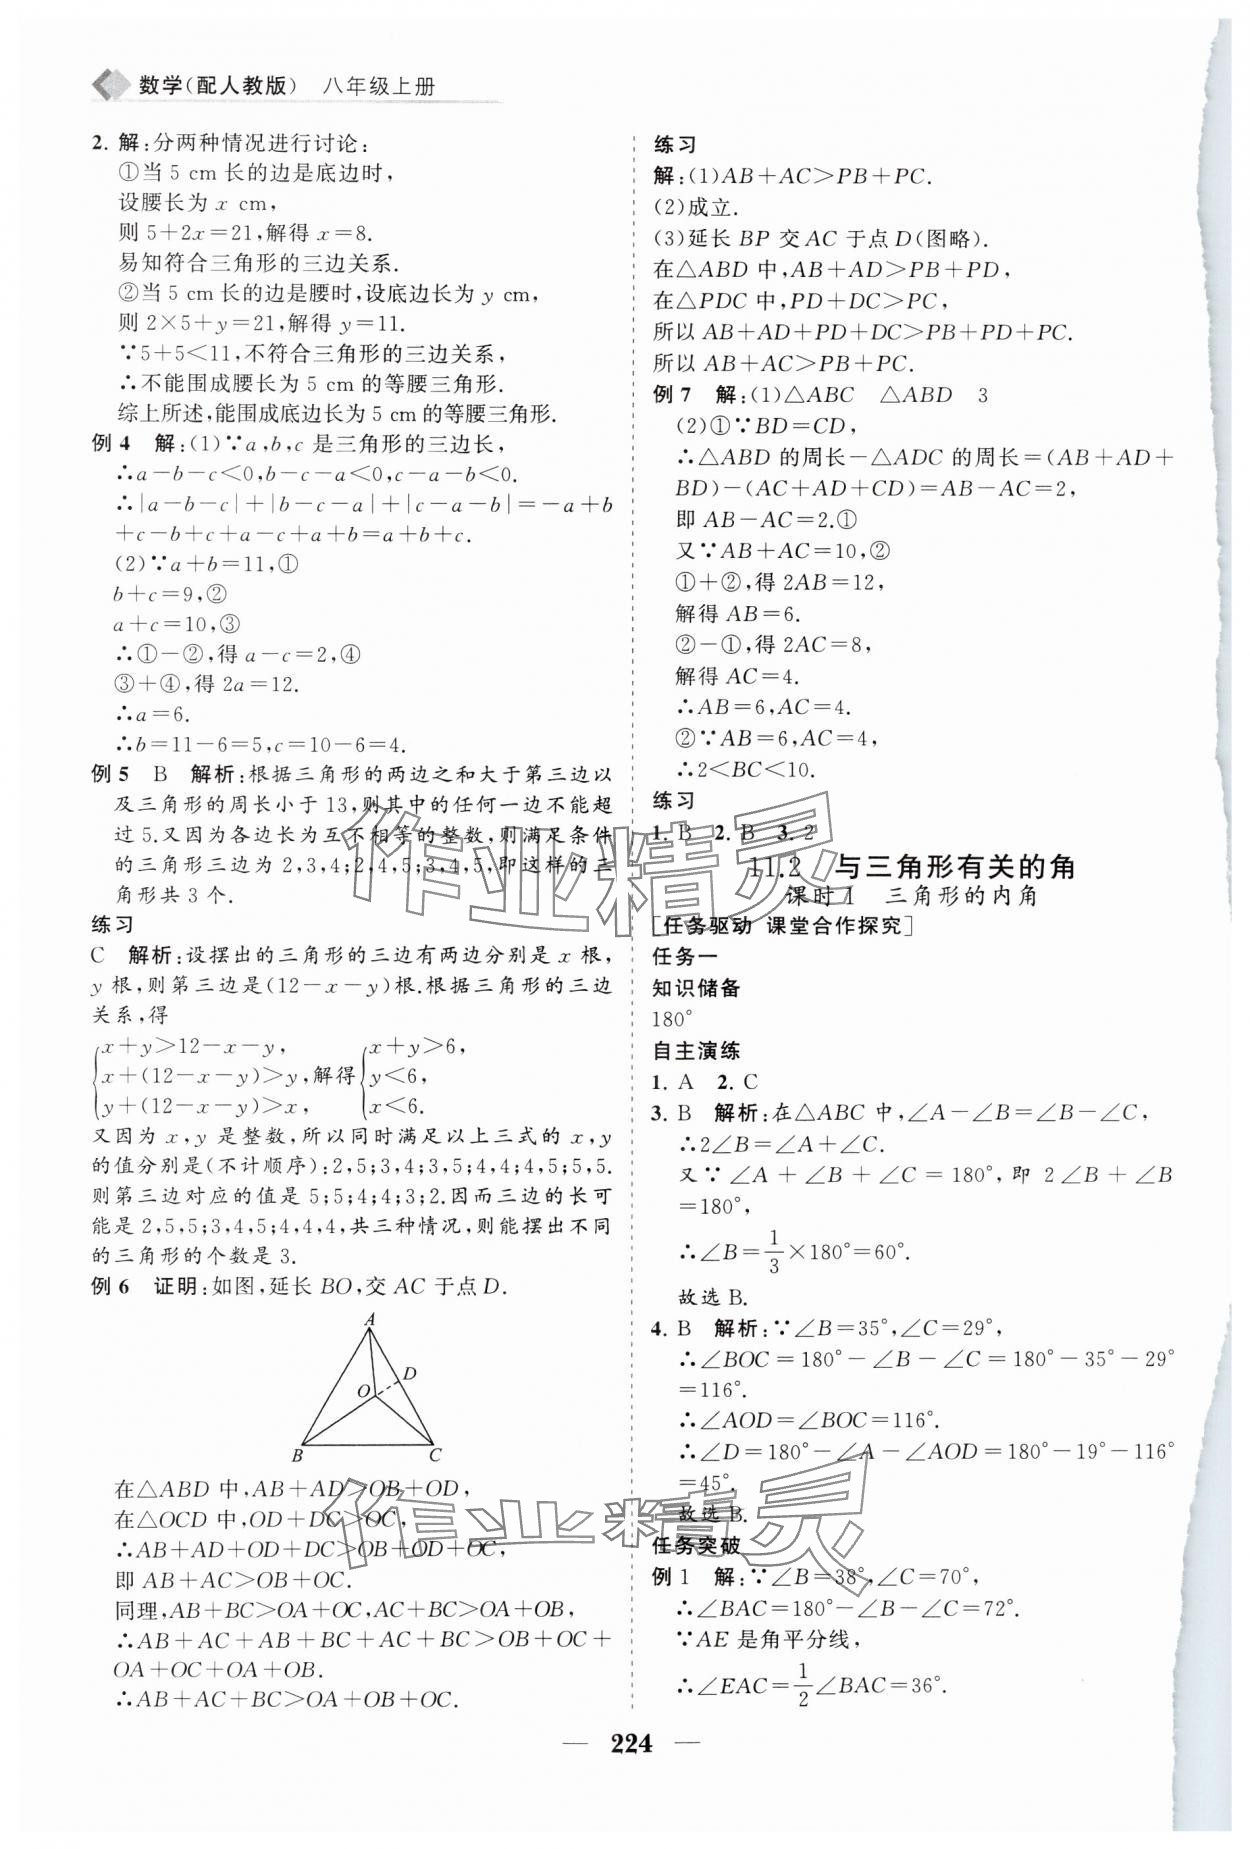 数学(配人教版) 八年级上册
2. 解:分两种情况进行讨论:
①当 5 cm 长的边是底边时,
设腰长为 x cm,
则 5+2x=21,解得 x=8.
易知符合三角形的三边关系.
②当 5 cm 长的边是腰时,设底边长为 y cm,
则 2×5+y=21,解得 y=11.
∵5+5<11,不符合三角形的三边关系,
∴不能围成腰长为 5 cm 的等腰三角形.
综上所述,能围成底边长为 5 cm 的等腰三角形.
例 4 解:(1)∵a,b,c 是三角形的三边长,
∴a-b-c<0,b-c-a<0,c-a-b<0.
∴|a-b-c|+|b-c-a|+|c-a-b|=-a+b
+c-b+c+a-c+a+b=a+b+c.
(2)∵a+b=11,①
b+c=9,②
a+c=10,③
∴①-②,得 a-c=2,④
③+④,得 2a=12.
∴a=6.
∴b=11-6=5,c=10-6=4.
例 5 B 解析:根据三角形的两边之和大于第三边以
及三角形的周长小于 13,则其中的任何一边不能超
过 5.又因为各边长为互不相等的整数,则满足条件
的三角形三边为 2,3,4;2,4,5;3,4,5,即这样的三
角形共 3 个.
练习
C 解析:设摆出的三角形的三边有两边分别是 x 根,
y 根,则第三边是(12-x-y)根.根据三角形的三边
关系,得
x+y>12-x-y, x+y>6,
x+(12-x-y)>y,解得 y<6,
y+(12-x-y)>x, x<6.
又因为 x,y 是整数,所以同时满足以上三式的 x,y
的值分别是(不计顺序):2,5;3,4;3,5;4,4;4,5;5,5.
则第三边对应的值是 5;5;4;4;3;2.因而三边的长可
能是 2,5,5;3,4,5;4,4,4,共三种情况,则能摆出不同
的三角形的个数是 3.
例 6 证明:如图,延长 BO,交 AC 于点 D.
A
D
O
B C
在△ABD 中,AB+AD>OB+OD,
在△OCD 中,OD+DC>OC,
∴AB+AD+OD+DC>OB+OD+OC,
即 AB+AC>OB+OC.
同理,AB+BC>OA+OC,AC+BC>OA+OB,
∴AB+AC+AB+BC+AC+BC>OB+OC+
OA+OC+OA+OB.
∴AB+AC+BC>OA+OB+OC.
练习
解:(1)AB+AC>PB+PC.
(2)成立.
(3)延长 BP 交 AC 于点 D(图略).
在△ABD 中,AB+AD>PB+PD,
在△PDC 中,PD+DC>PC,
所以 AB+AD+PD+DC>PB+PD+PC.
所以 AB+AC>PB+PC.
例 7 解:(1)△ABC △ABD 3
(2)①∵BD=CD,
∴△ABD 的周长-△ADC 的周长=(AB+AD+
BD)-(AC+AD+CD)=AB-AC=2,
即 AB-AC=2.①
又∵AB+AC=10,②
①+②,得 2AB=12,
解得 AB=6.
②-①,得 2AC=8,
解得 AC=4.
∴AB=6,AC=4.
②∵AB=6,AC=4,
∴2<BC<10.
练习
1. B 2. B 3. 2
11.2 与三角形有关的角
课时 1 三角形的内角
[任务驱动 课堂合作探究]
任务一
知识储备
180°
自主演练
1. A 2. C
3. B 解析:在△ABC 中,∠A-∠B=∠B-∠C,
∴2∠B=∠A+∠C.
又∵∠A+∠B+∠C=180°,即 2∠B+∠B
=180°,
∴∠B=1/3×180°=60°.
故选 B.
4. B 解析:∵∠B=35°,∠C=29°,
∴∠BOC=180°-∠B-∠C=180°-35°-29°
=116°.
∴∠AOD=∠BOC=116°.
∴∠D=180°-∠A-∠AOD=180°-19°-116°
=45°.
故选 B.
任务突破
例 1 解:∵∠B=38°,∠C=70°,
∴∠BAC=180°-∠B-∠C=72°.
∵AE 是角平分线,
∴∠EAC=1/2∠BAC=36°.
— 224 —
作业精灵
作业精灵